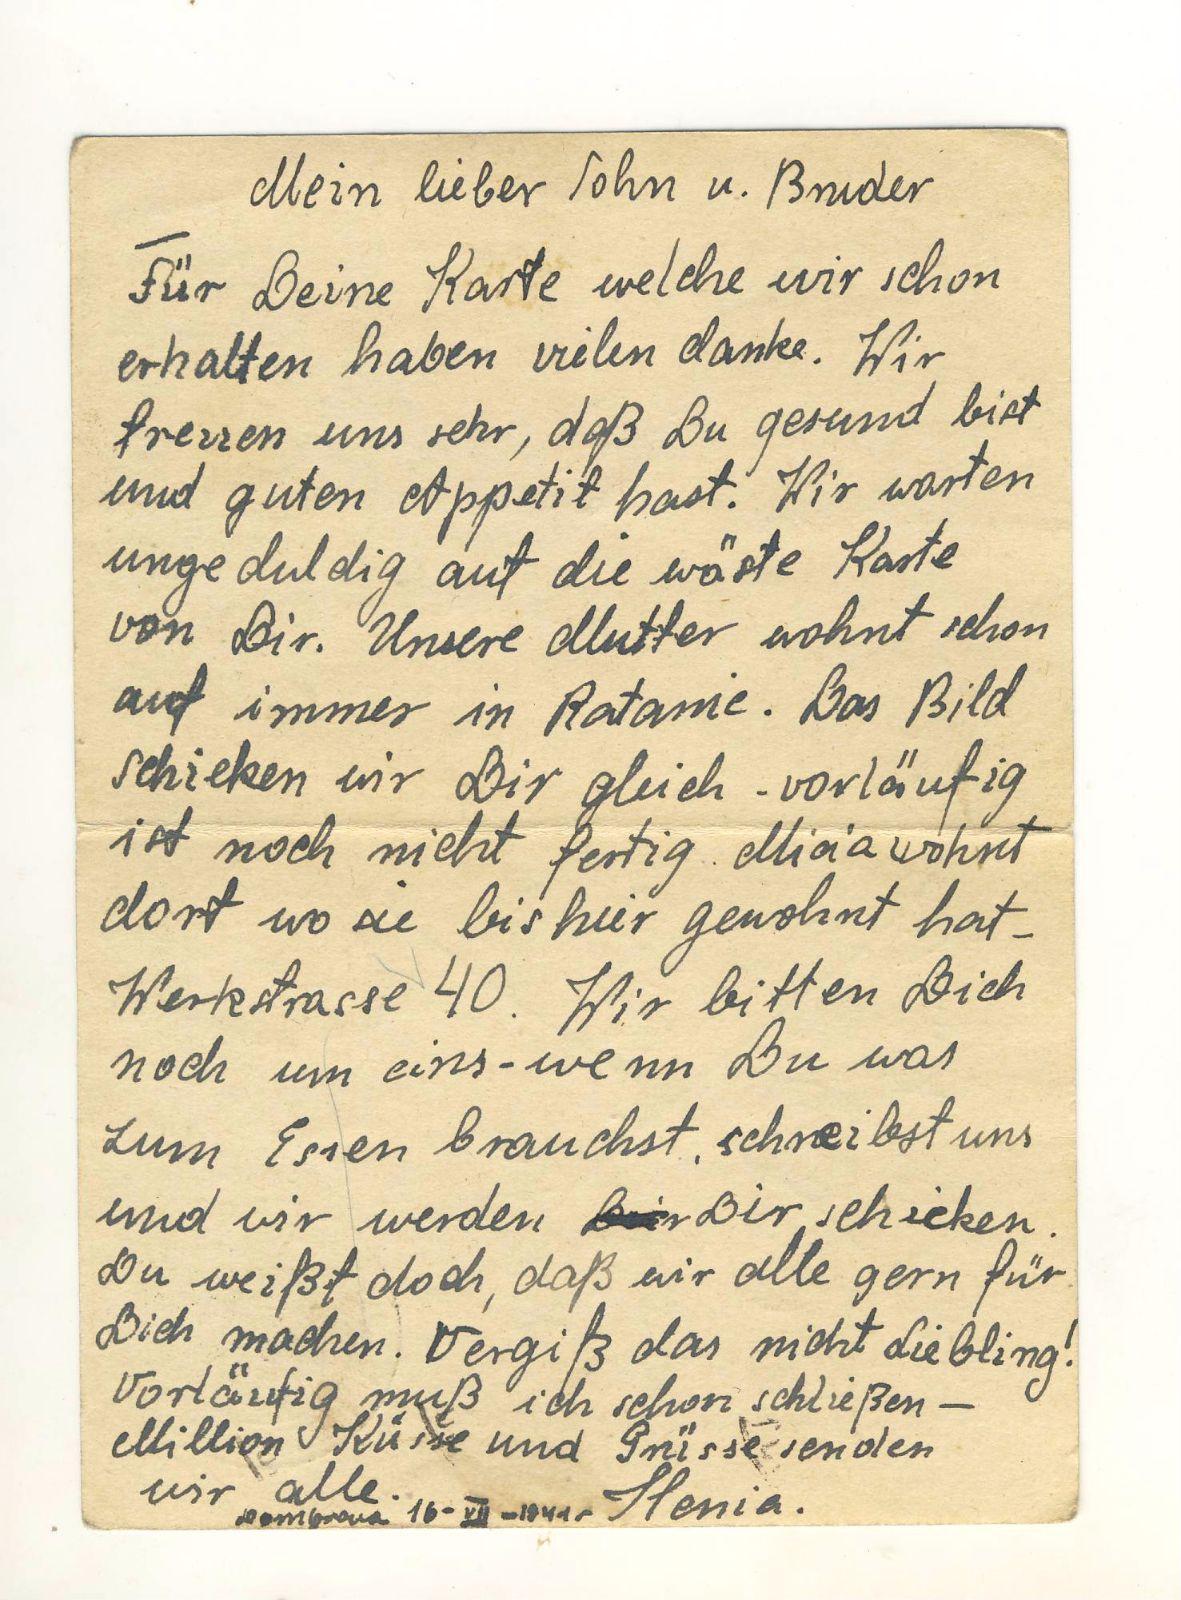 Mein lieber Sohn u. Bruder
Für Deine Karte welche wir schon
erhalten haben vielen danke. Wir
freuen uns sehr, daß Du gesund bist
und guten Appetit hast. Wir warten
ungeduldig auf die wäste Karte
von Dir. Unsere Mutter wohnt schon
auf immer in Ratanie. Das Bild
schicken wir Dir gleich - vorläufig
ist noch nicht fertig. Micia wohnt
dort wo sie bis hier gewohnt hat -
Werkstrasse 40. Wir bitten Dich
noch um eins - wenn Du was
zum Essen brauchst, schreibst uns
und wir werden Dir schicken.
Du weißt doch, daß wir alle gern für
Dich machen. Vergiß das nicht Liebling!
Vorläufig muß ich schon schließen -
Million Küsse und Grüsse senden
wir alle. Henia.
Dombrowa 16-VII-1941r